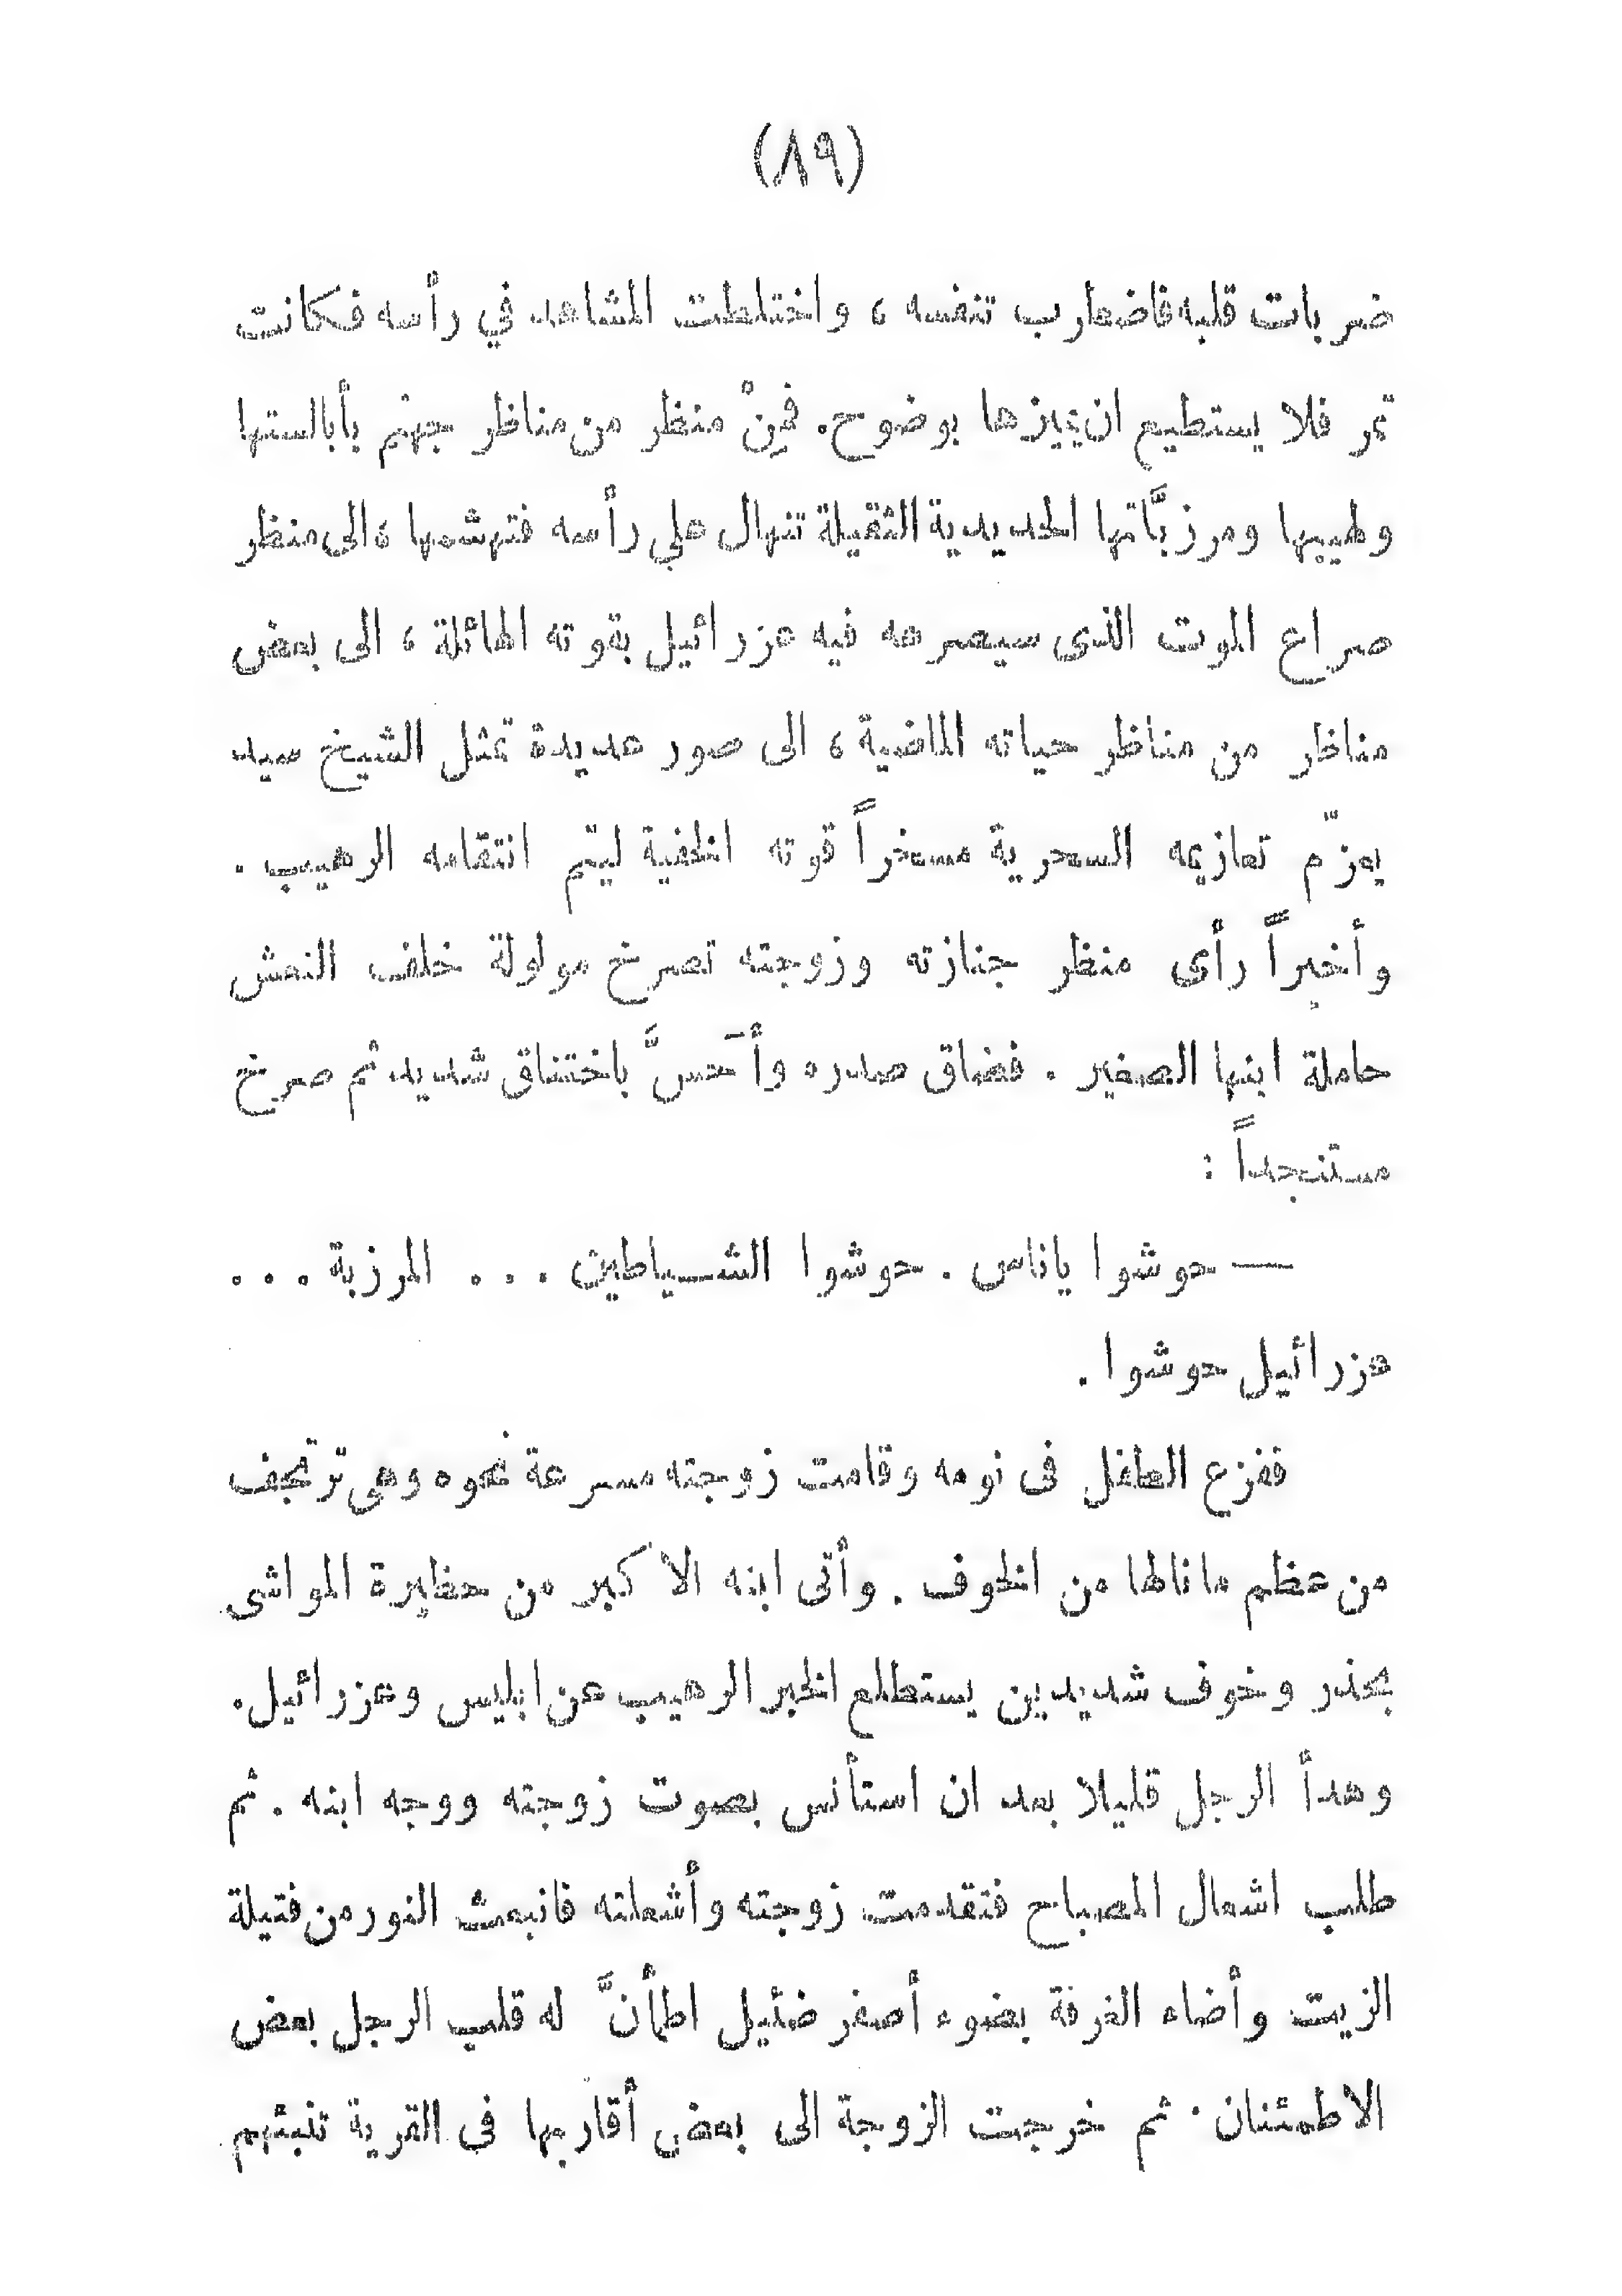 (٨٩)
ضربات قلبه فاضطرب تنفسه ، واختلطت المشاهد في رأسه فكانت
تمر فلا يستطيع ان يميزها بوضوح. فمِنْ منظر من مناظر جهنم بأبالستها
ولهيبها ومرزبَّاتها الحديدية الثقيلة تنهال على رأسه فتهشمها ، الى منظر
صراع الموت الذى سيصرعه فيه عزرائيل بقوته الهائلة ، الى بعض
مناظر من مناظر حياته الماضية ، الى صور عديدة تمثل الشيخ سيد
يعزّم تعازيمه السحرية مسخراً قوته الخفية ليتم انتقامه الرهيب .
وأخيراً رأى منظر جنازته وزوجته تصرخ مولولة خلف النعش
حاملة ابنها الصغير . فضاق صدره وأَحسَّ باختناق شديد ثم صرخ
مستنجداً :
— حوشوا ياناس . حوشوا الشياطين . . . المرزبة . . .
عزرائيل حوشوا .
ففزع الطفل فى نومه وقامت زوجته مسرعة نحوه وهى ترتجف
من عظم ما نالها من الخوف . وأتى ابنه الاكبر من حظيرة المواشى
بحذر وخوف شديدين يستطلع الخبر الرهيب عن ابليس وعزرائيل.
وهدأ الرجل قليلا بعد ان استأنس بصوت زوجته ووجه ابنه . ثم
طلب اشعال المصباح فتقدمت زوجته وأشعلته فانبعث النور من فتيلة
الزيت وأضاء الغرفة بضوء أصفر ضئيل اطمأنَّ له قلب الرجل بعض
الاطمئنان . ثم خرجت الزوجة الى بعض أقاربها فى القرية تنبئهم